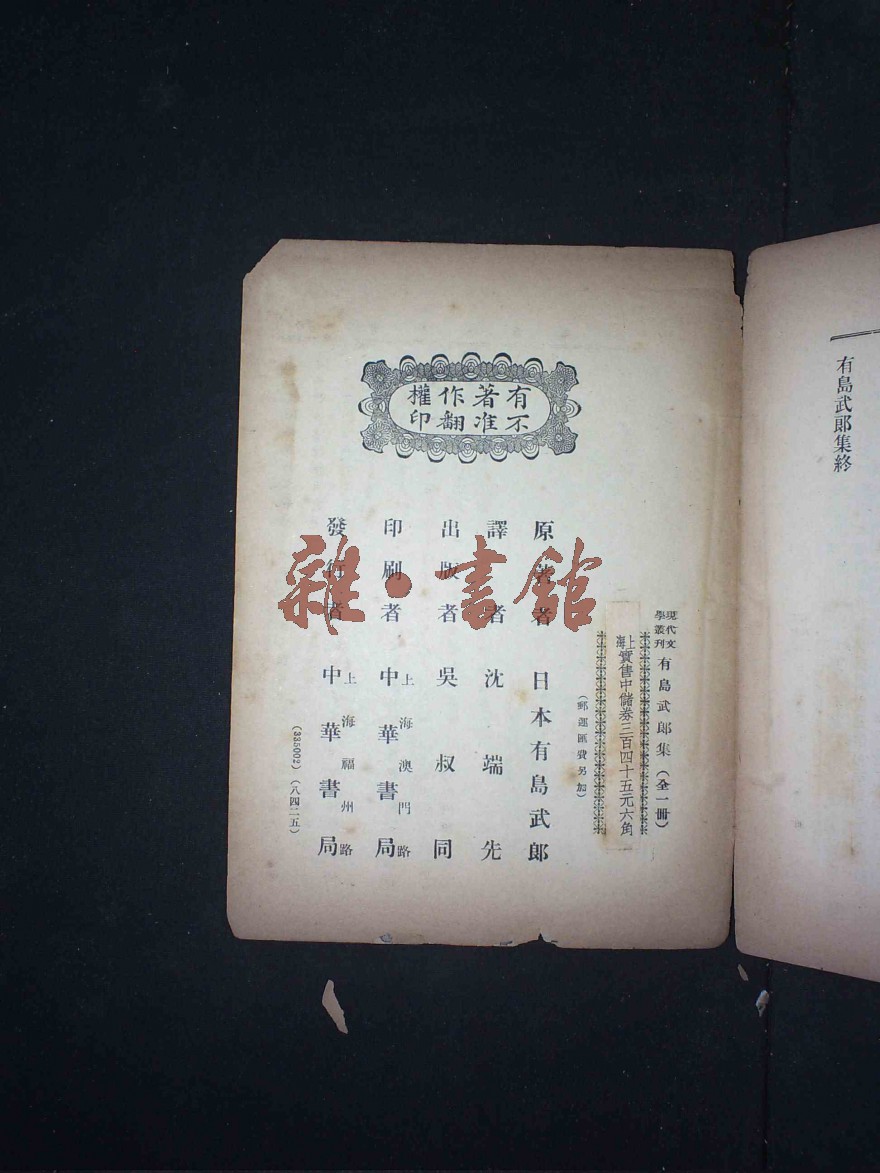 有島武郎集終
現代文
學叢刊
有島武郎集(全一冊)
上海
實售中儲券三百四十五元六角
(郵運匯費另加)
有著作權
不准翻印
原著者 日本有島武郎
譯者 沈端先
出版者 吳叔同
印刷者 上海澳門路
中華書局
發行者 上海福州路
中華書局
(335002)(八四二五)
雜·書館